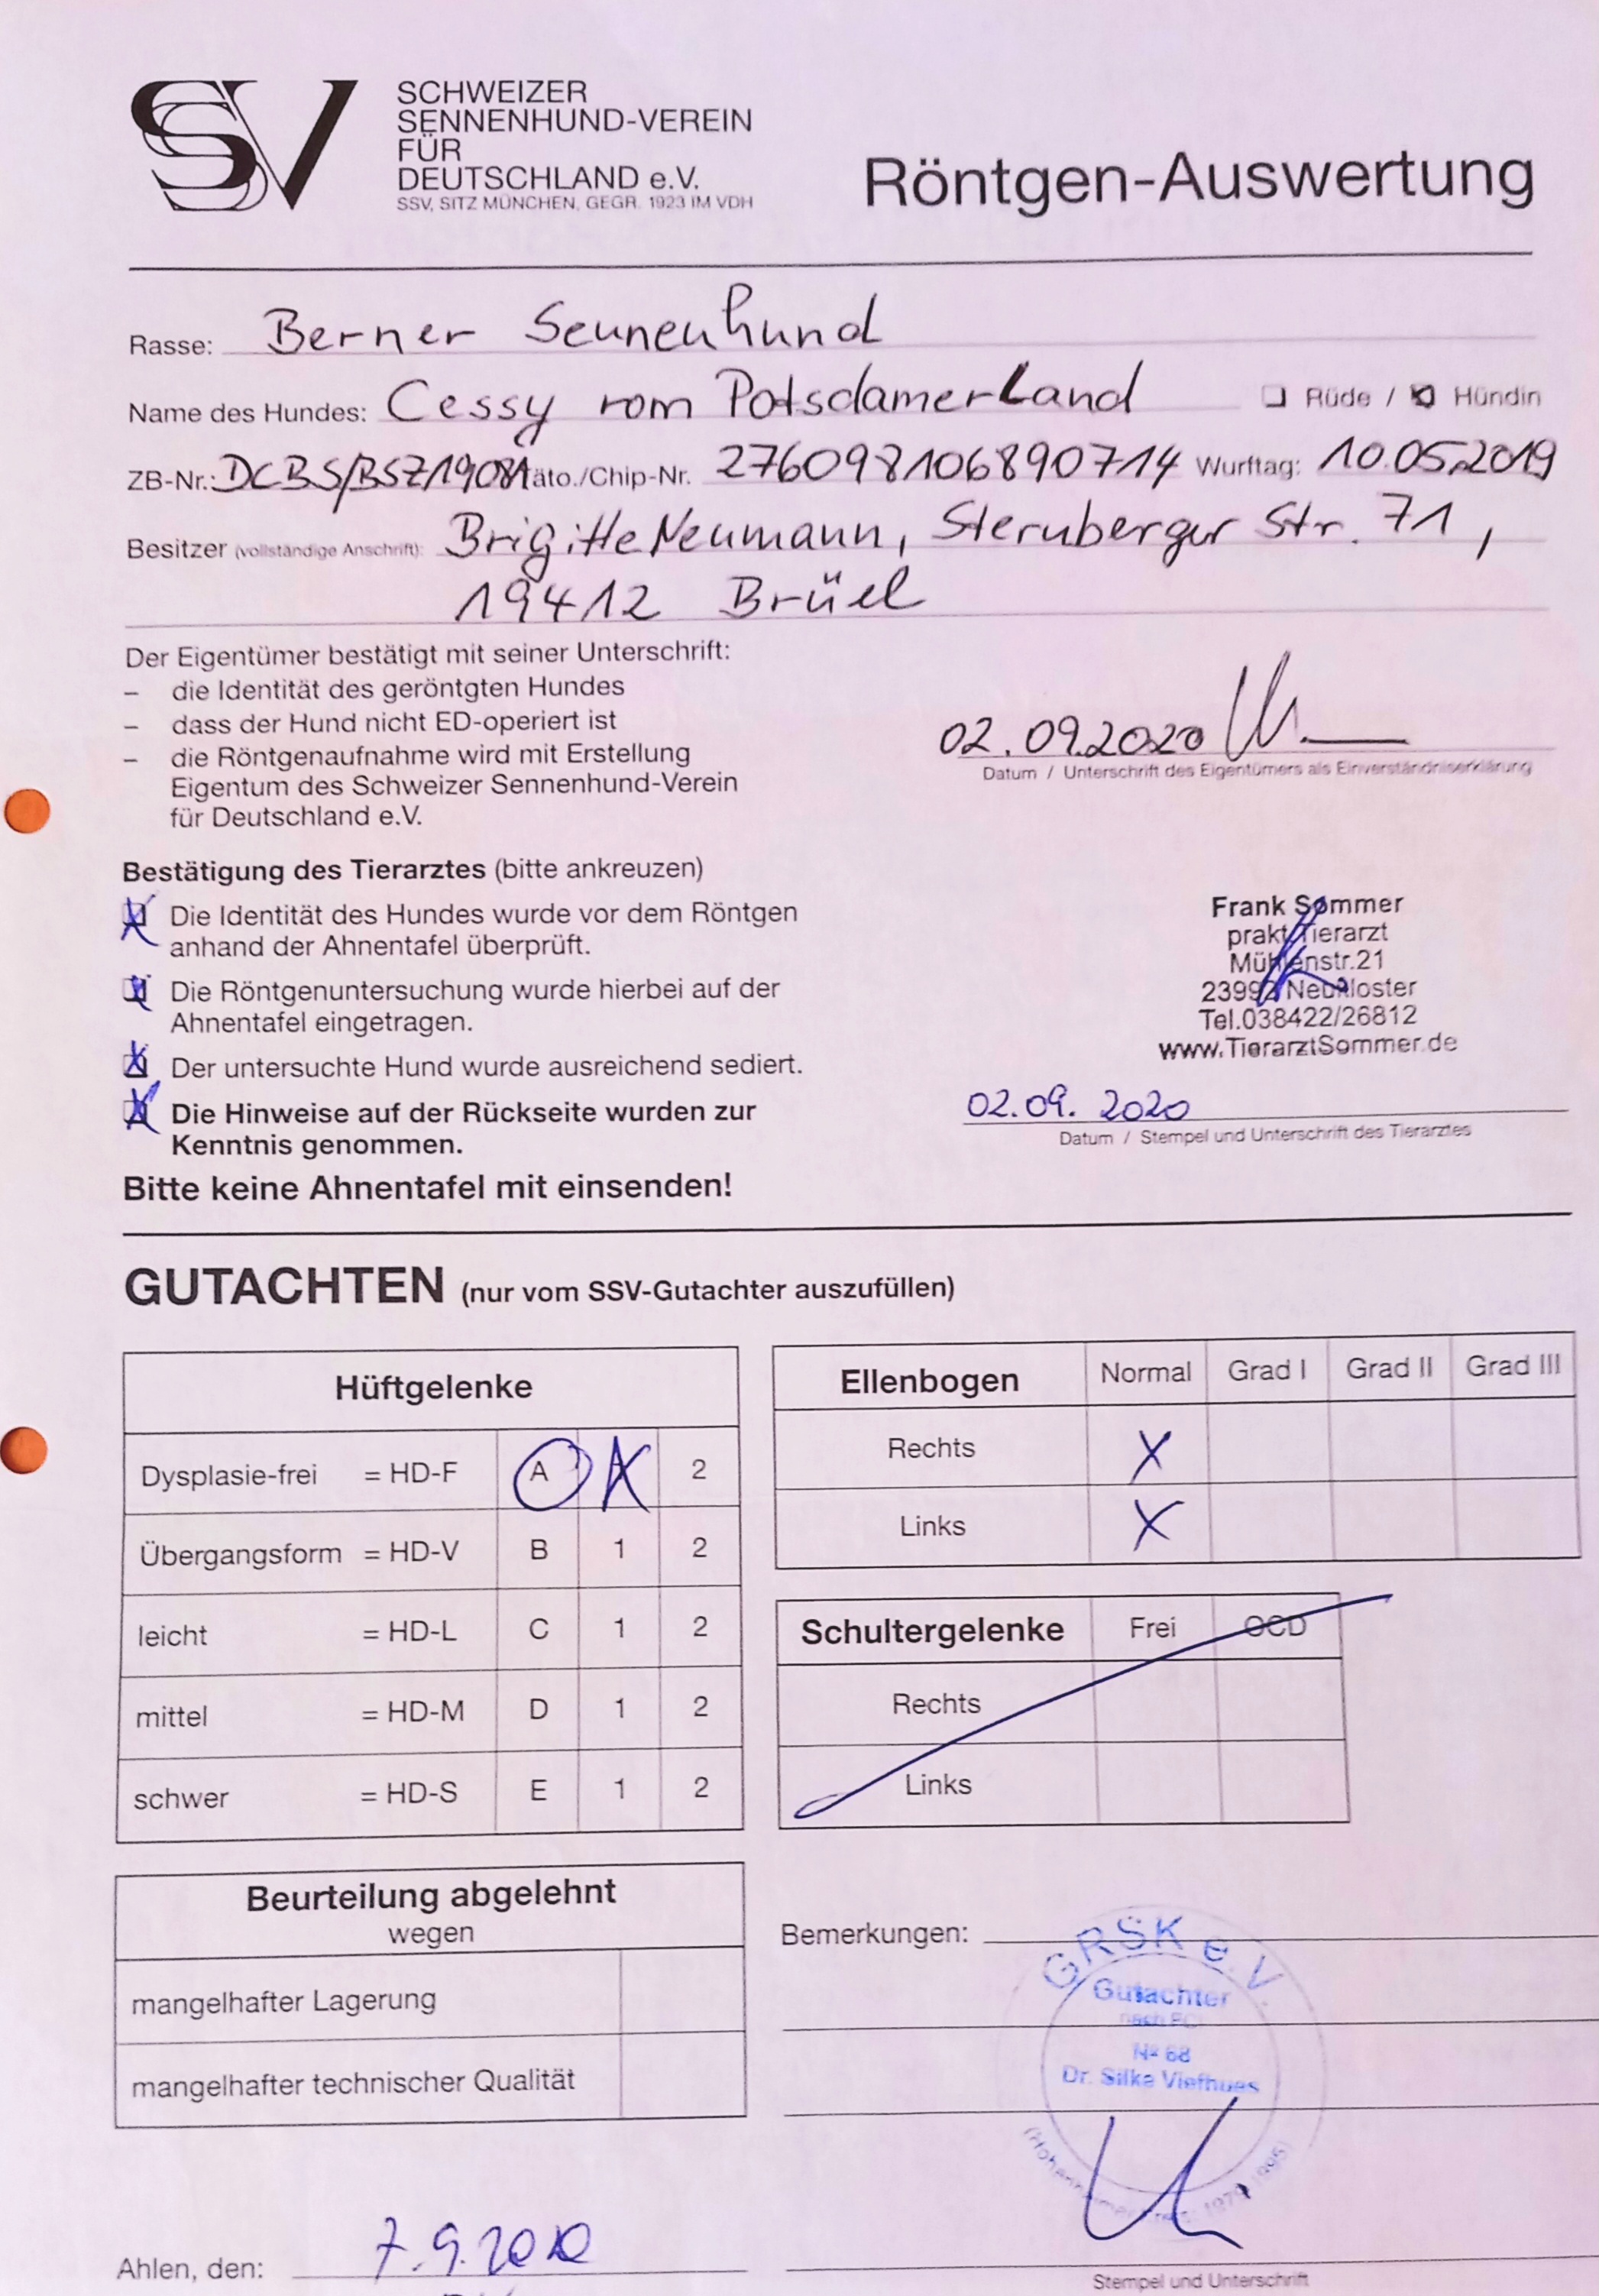 SSV
SCHWEIZER
SENNENHUND-VEREIN
FÜR
DEUTSCHLAND e.V.
SSV, SITZ MÜNCHEN, GEGR. 1923 IM VDH
Röntgen-Auswertung
Rasse: Berner Sennenhund
Name des Hundes: Cessy vom PotsdamerLand Rüde / Hündin
ZB-Nr.: DCBS/BSZ19081 Täto./Chip-Nr. 276098106890714 Wurftag: 10.05.2019
Besitzer (vollständige Anschrift): Brigitte Neumann, Sternberger Str. 71,
19412 Brüel
Der Eigentümer bestätigt mit seiner Unterschrift:
– die Identität des geröntgten Hundes
– dass der Hund nicht ED-operiert ist
– die Röntgenaufnahme wird mit Erstellung
Eigentum des Schweizer Sennenhund-Verein
für Deutschland e.V.
02.09.2020
Datum / Unterschrift des Eigentümers als Einverständniserklärung
Bestätigung des Tierarztes (bitte ankreuzen)
Die Identität des Hundes wurde vor dem Röntgen
anhand der Ahnentafel überprüft.
Die Röntgenuntersuchung wurde hierbei auf der
Ahnentafel eingetragen.
Der untersuchte Hund wurde ausreichend sediert.
Die Hinweise auf der Rückseite wurden zur
Kenntnis genommen.
Bitte keine Ahnentafel mit einsenden!
Frank Sommer
prakt.Tierarzt
Mühlenstr.21
23992 Neukloster
Tel.038422/26812
www.TierarztSommer.de
02.09. 2020
Datum / Stempel und Unterschrift des Tierarztes
GUTACHTEN (nur vom SSV-Gutachter auszufüllen)
Hüftgelenke
Dysplasie-frei = HD-F A X 2
Übergangsform = HD-V B 1 2
leicht = HD-L C 1 2
mittel = HD-M D 1 2
schwer = HD-S E 1 2
Ellenbogen Normal Grad I Grad II Grad III
Rechts X
Links X
Schultergelenke Frei OCD
Rechts
Links
Beurteilung abgelehnt
wegen
mangelhafter Lagerung
mangelhafter technischer Qualität
Bemerkungen:
GRSK e.V.
Gutachter
nach FCI
Nº 68
Dr. Silke Viefhues
Ahlen, den: 7.9.2020
Stempel und Unterschrift